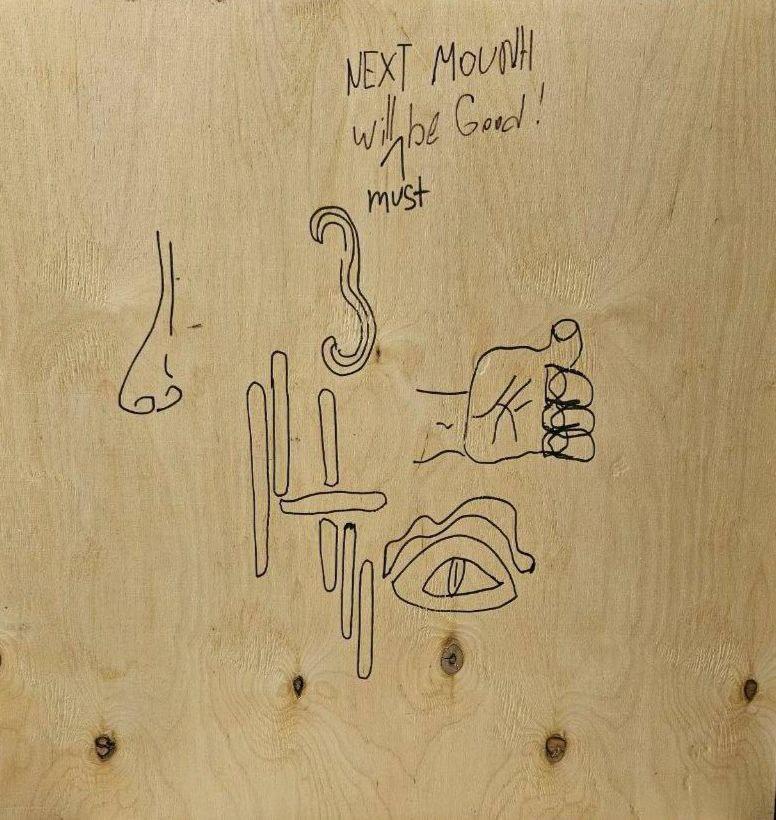 NEXT MOUNH
will be Good!
must